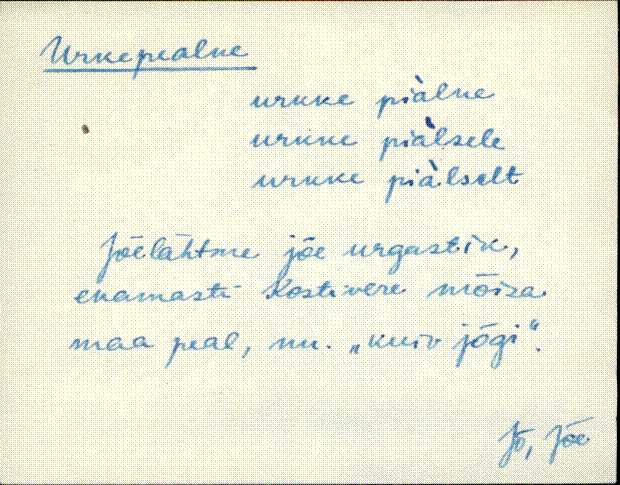 Urkepealne
urkke piàlne
urkke piàlsele
urkke piàlselt
Jõelähtme jõe urgastik,
enamasti Kostivere mõisa
maa peal, nn. „kuiv jõgi“.
Jõ, Jõe